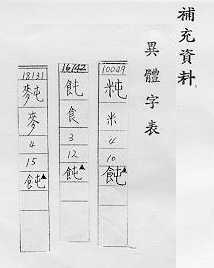 補充資料
異體字表
米
4
10
飩▲
飩
食
3
12
飩▲
18131
麥
4
15
飩▲